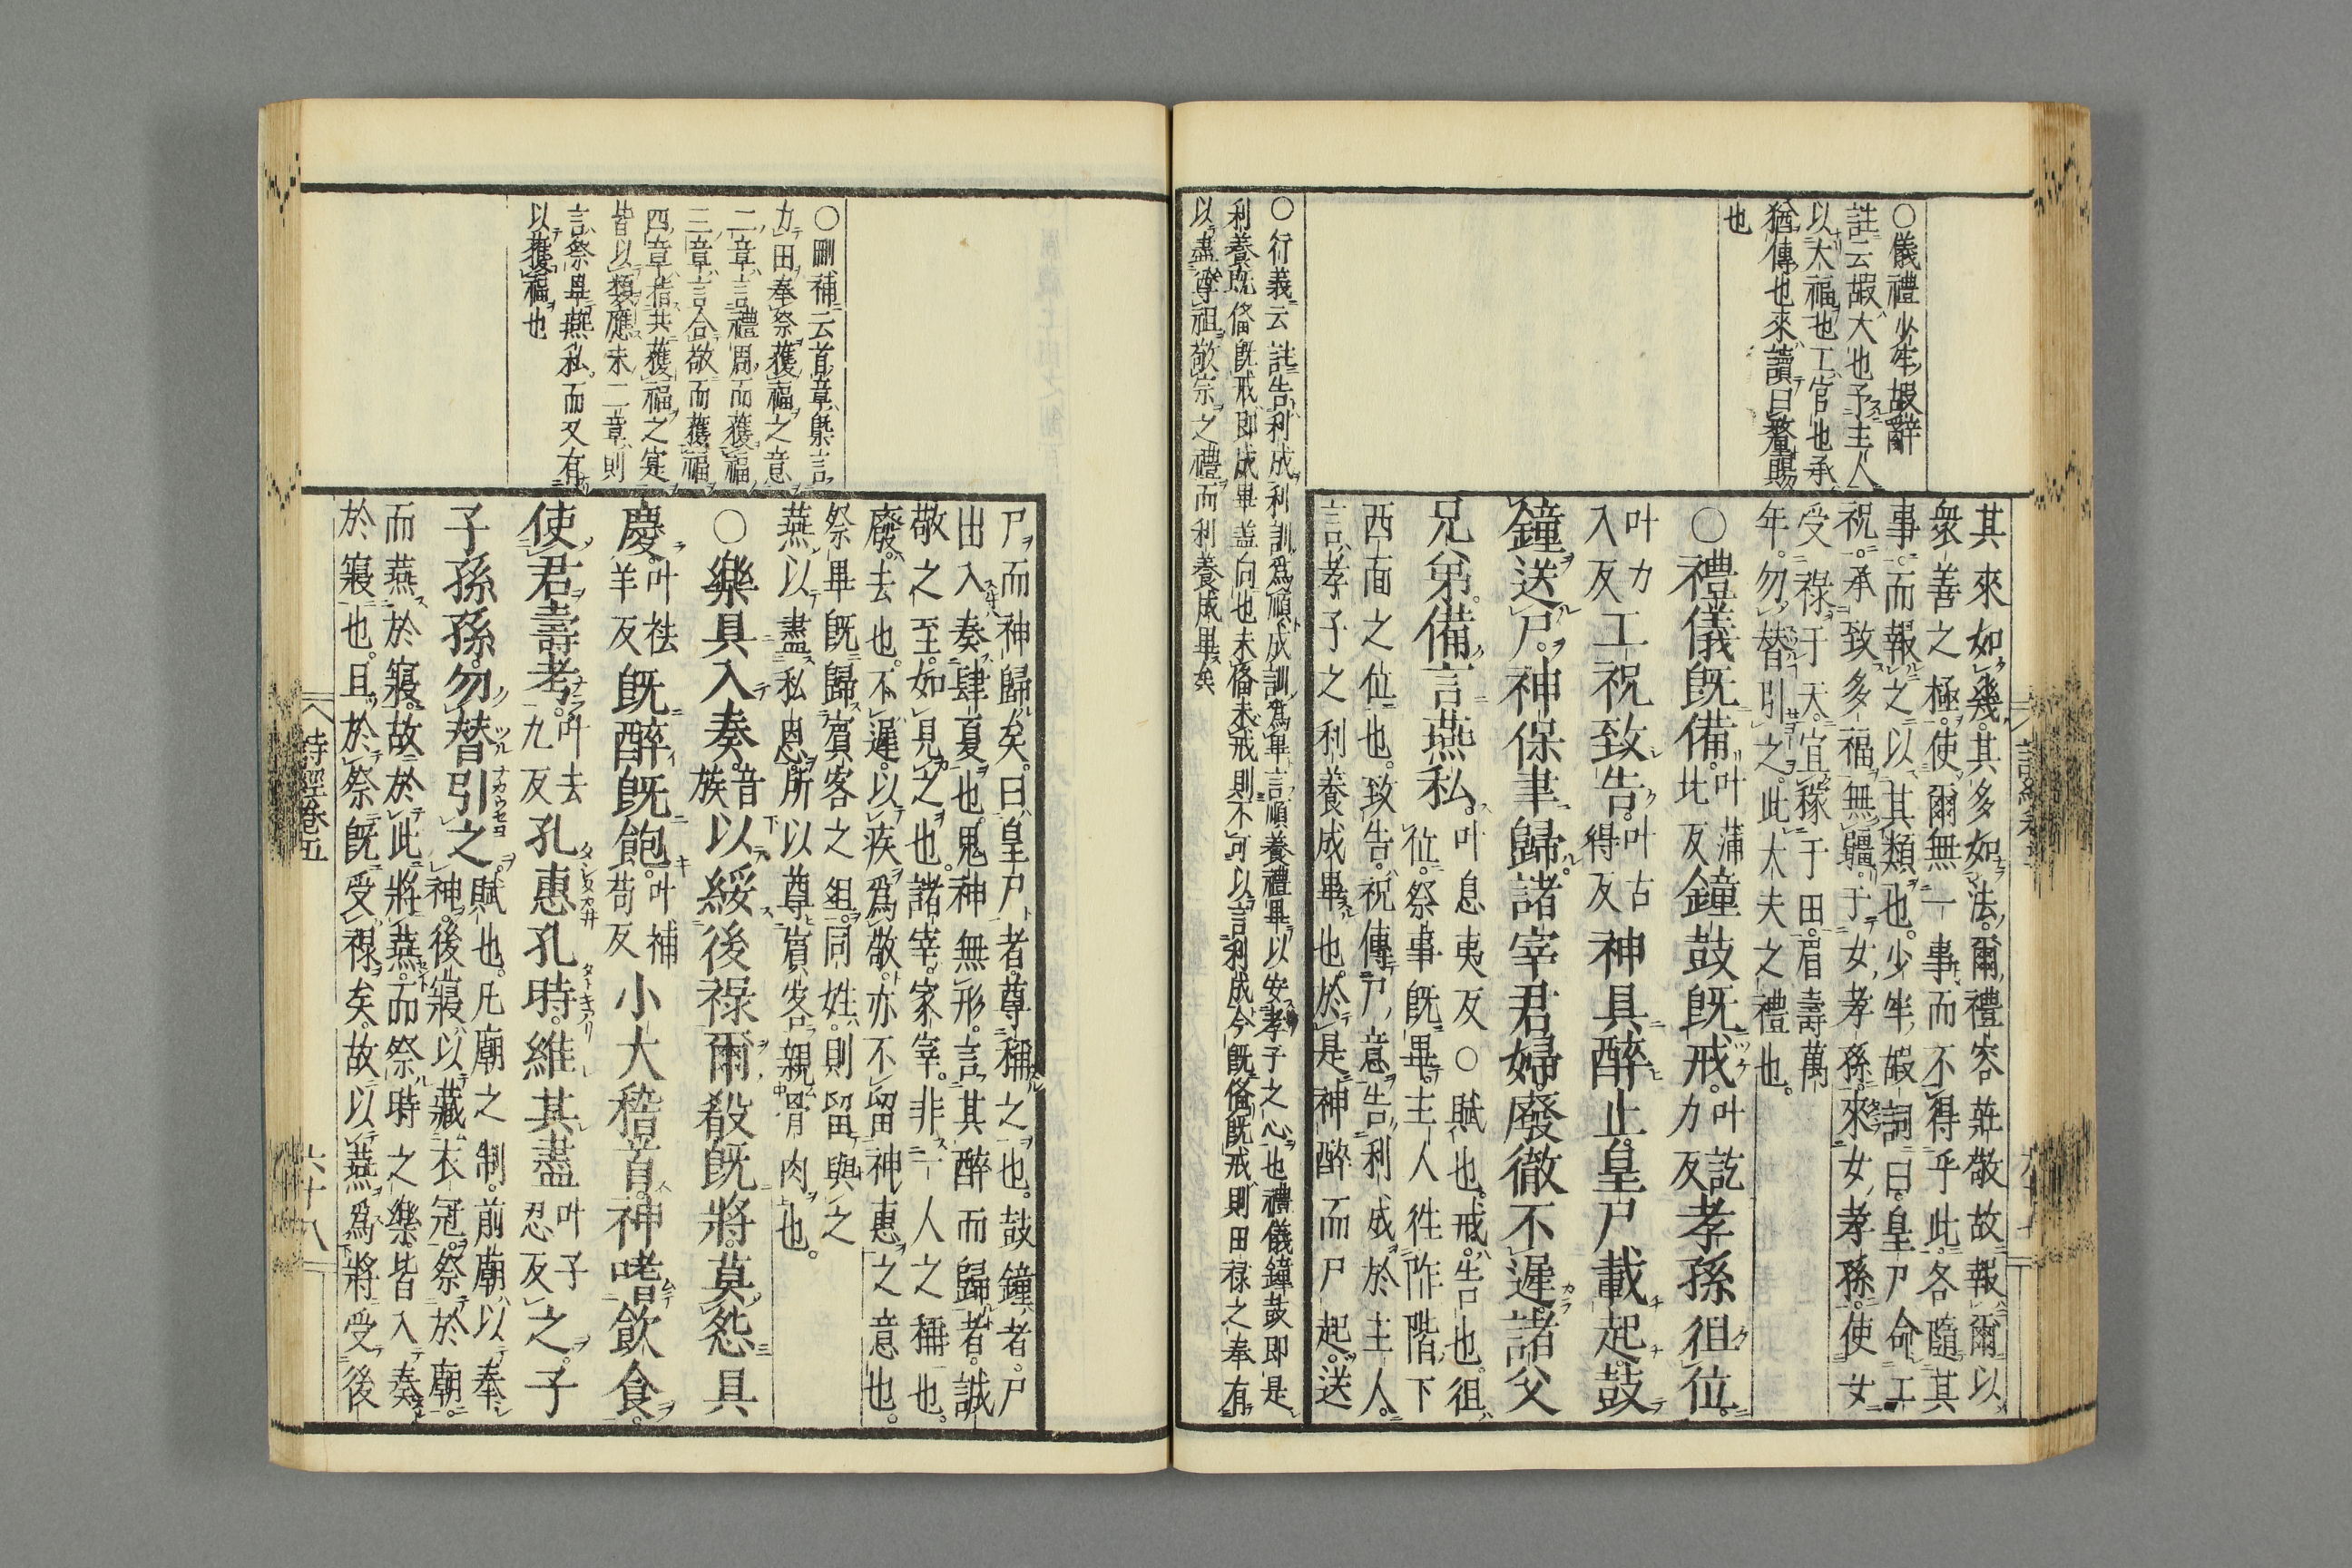 〇儀禮少牢嘏辭
註云嘏大也予主人
以大福也工官也承
猶傳也來讀曰釐賜
也
其來如幾其多如法爾禮容莊敬故報爾以
衆善之極使爾無一事而不得乎此各隨其
事而報之以其類也少牢嘏詞曰皇尸命工
祝承致多福無疆于女孝孫來女孝孫使女
受祿于天宜稼于田眉壽萬
年勿替引之此大夫之禮也
〇禮儀既備叶蒲北反鐘鼓既戒叶訖力反孝孫徂位
叶力入反工祝致告叶古得反神具醉止皇尸載起鼓
鐘送尸神保聿歸諸宰君婦廢徹不遲諸父
兄弟備言燕私叶息夷反〇賦也戒告也徂位祭事既畢主人往阼階下
西面之位也致告祝傳尸意告利成於主人
言孝子之利養成畢也於是神醉而尸起送
〇衍義云註告利成利訓爲順成訓爲畢言順養禮畢以安孝子之心也禮儀鐘鼓即是
利養既備既戒即成畢盖向也未備未戒則不可以言利成今既備既戒則田祿之奉有
以盡尊祖敬宗之禮而利養成畢矣
〇刪補云首章槩言
力田奉祭獲福之意
二章言禮周而獲福
三章言合敬而獲福
四章指其獲福之寔
皆以類應末二章則
言祭畢燕私而又有
以獲福也
尸而神歸矣曰皇尸者尊稱之也鼓鐘者尸
出入奏肆夏也鬼神無形言其醉而歸者誠
敬之至如見之也諸宰家宰非一人之稱也
廢去也不遲以疾爲敬亦不留神惠之意也
祭畢既歸賓客之俎同姓則留與之
燕以盡私恩所以尊賓客親骨肉也
〇樂具入奏音族以綏後祿爾殽既將莫怨具
慶叶袪羊反既醉既飽叶補苟反小大稽首神嗜飲食
使君壽考叶去九反孔惠孔時維其盡叶子忍反之子
子孫孫勿替引之賦也凡廟之制前廟以奉神後寢以藏衣冠祭於廟
而燕於寢故於此將燕而祭時之樂皆入奏
於寢也且於祭既受祿矣故以燕爲將受後
詩經卷五
六十八